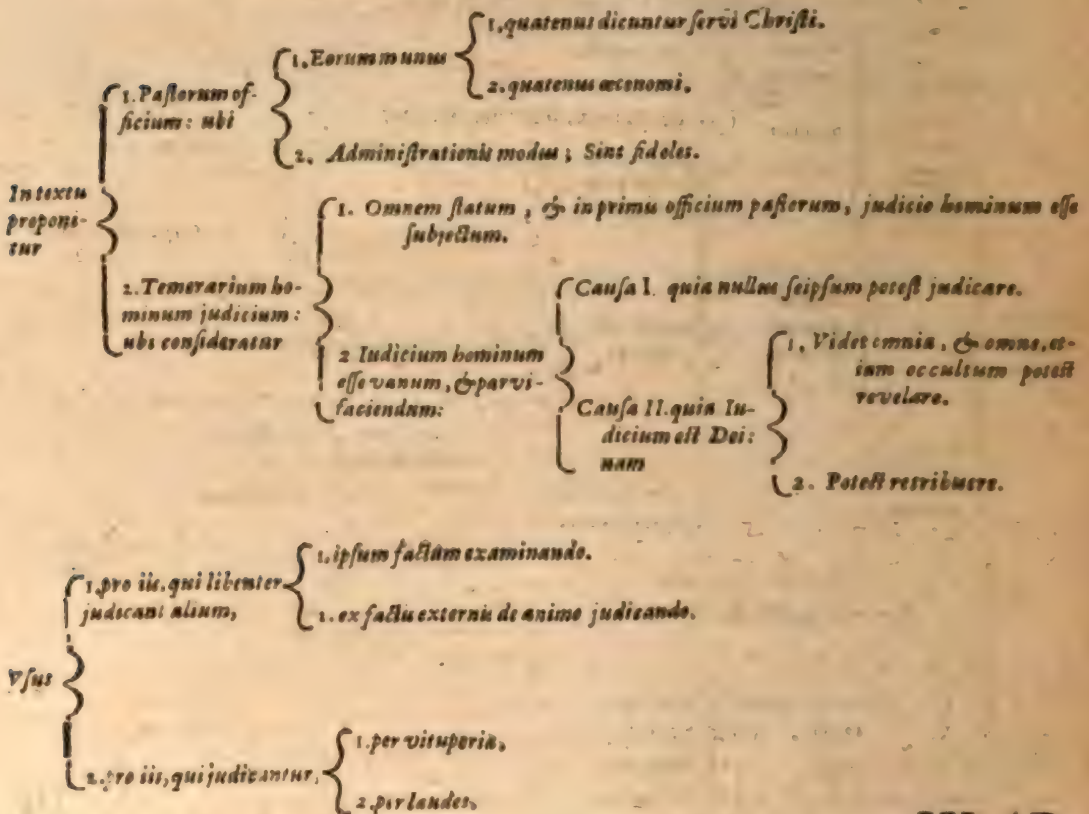 In textu
proponi-
tur
1. Pastorum of-
ficium: ubi
1. Eorum munus
1. quatenus dicuntur servi Christi.
2. quatenus œconomi.
2. Administrationis modus; Sint fideles.
2. Temerarium ho-
minum judicium:
ubi consideratur
1. Omnem statum, & inprimis officium pastorum, judicio hominum esse
subjectum.
2 Iudicium hominum
esse vanum, & parvi-
faciendum:
Causa I. quia nullus seipsum potest judicare.
Causa II. quia Iu-
dicium est Dei:
nam
1. Videt omnia, & omne, et-
iam occultum potest
revelare.
2. Potest retribuere.
Vsus
1. pro iis, qui libenter
judicant alium,
1. ipsum factum examinando.
1. ex factis externis de animo judicando.
2. pro iis, qui judicantur,
1. per vituperia,
2. per laudes,